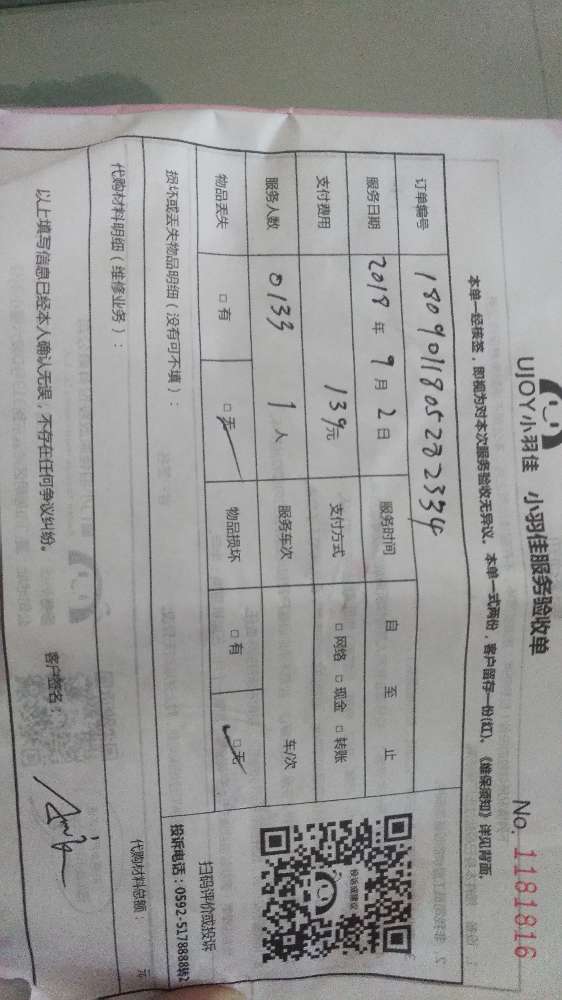 UJOY小羽佳 小羽佳服务验收单
No. 1181816
本单一经核签，即视为对本次服务验收无异议。本单一式两份，客户留存一份(红)。《维保须知》详见背面。
订单编号 1809011805282334
服务日期 2018 年 9 月 2 日 服务时间 自 至 止
支付费用 139元 支付方式 □ 网络 □ 现金 □ 转账
服务人数 0133 1 人 服务车次 车/次
物品丢失 □ 有 □ 无 物品损坏 □ 有 □ 无
投诉或建议
扫码评价或投诉
投诉电话：0592-5178888转2
损坏或丢失物品明细（没有可不填）：
代购材料明细（维修业务）： 代购材料总额： 元
以上填写信息已经本人确认无误，不存在任何争议纠纷。 客户签名：